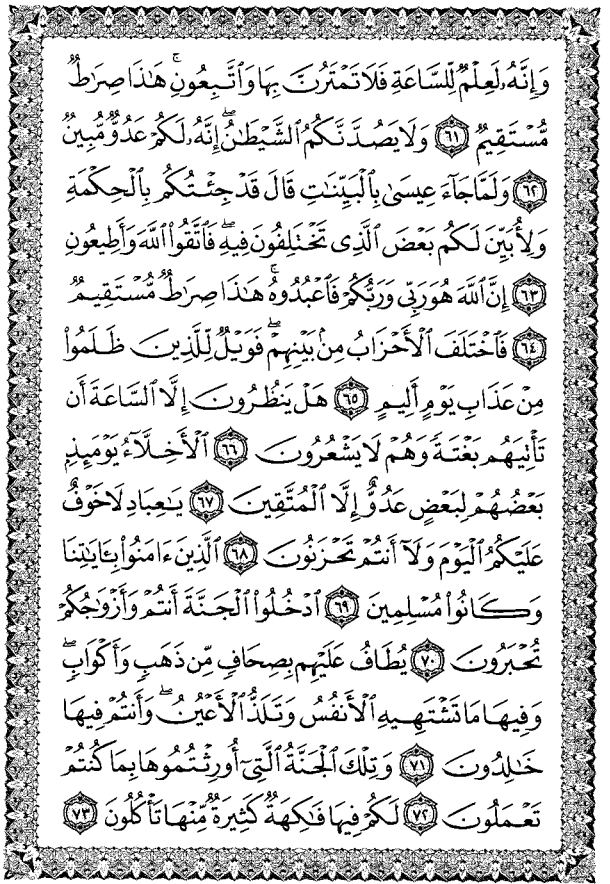 وَإِنَّهُۥ لَعِلْمٌ لِّلسَّاعَةِ فَلَا تَمْتَرُنَّ بِهَا وَٱتَّبِعُونِ ۚ هَٰذَا صِرَٰطٌ
مُّسْتَقِيمٌ ٦١ وَلَا يَصُدَّنَّكُمُ ٱلشَّيْطَٰنُ ۖ إِنَّهُۥ لَكُمْ عَدُوٌّ مُّبِينٌ
٦٢ وَلَمَّا جَآءَ عِيسَىٰ بِٱلْبَيِّنَٰتِ قَالَ قَدْ جِئْتُكُم بِٱلْحِكْمَةِ
وَلِأُبَيِّنَ لَكُم بَعْضَ ٱلَّذِى تَخْتَلِفُونَ فِيهِ ۖ فَٱتَّقُوا۟ ٱللَّهَ وَأَطِيعُونِ
٦٣ إِنَّ ٱللَّهَ هُوَ رَبِّى وَرَبُّكُمْ فَٱعْبُدُوهُ ۚ هَٰذَا صِرَٰطٌ مُّسْتَقِيمٌ
٦٤ فَٱخْتَلَفَ ٱلْأَحْزَابُ مِنۢ بَيْنِهِمْ ۖ فَوَيْلٌ لِّلَّذِينَ ظَلَمُوا۟
مِنْ عَذَابِ يَوْمٍ أَلِيمٍ ٦٥ هَلْ يَنظُرُونَ إِلَّا ٱلسَّاعَةَ أَن
تَأْتِيَهُم بَغْتَةً وَهُمْ لَا يَشْعُرُونَ ٦٦ ٱلْأَخِلَّآءُ يَوْمَئِذٍۭ
بَعْضُهُمْ لِبَعْضٍ عَدُوٌّ إِلَّا ٱلْمُتَّقِينَ ٦٧ يَٰعِبَادِ لَا خَوْفٌ
عَلَيْكُمُ ٱلْيَوْمَ وَلَآ أَنتُمْ تَحْزَنُونَ ٦٨ ٱلَّذِينَ ءَامَنُوا۟ بِـَٔايَٰتِنَا
وَكَانُوا۟ مُسْلِمِينَ ٦٩ ٱدْخُلُوا۟ ٱلْجَنَّةَ أَنتُمْ وَأَزْوَٰجُكُمْ
تُحْبَرُونَ ٧٠ يُطَافُ عَلَيْهِم بِصِحَافٍ مِّن ذَهَبٍ وَأَكْوَابٍ ۖ
وَفِيهَا مَا تَشْتَهِيهِ ٱلْأَنفُسُ وَتَلَذُّ ٱلْأَعْيُنُ ۖ وَأَنتُمْ فِيهَا
خَٰلِدُونَ ٧١ وَتِلْكَ ٱلْجَنَّةُ ٱلَّتِىٓ أُورِثْتُمُوهَا بِمَا كُنتُمْ
تَعْمَلُونَ ٧٢ لَكُمْ فِيهَا فَٰكِهَةٌ كَثِيرَةٌ مِّنْهَا تَأْكُلُونَ ٧٣